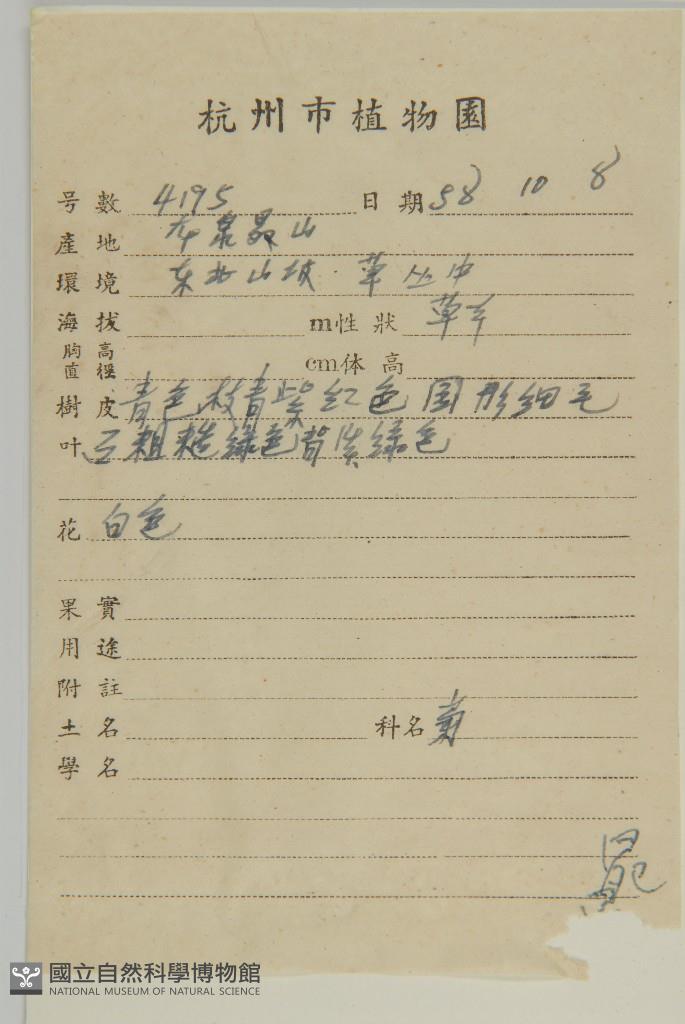 杭州市植物園
号數 4195 日期 58 10 8
產地 山
環境 东北山坡 草丛中
海拔 m性狀 草本
胸高直徑 cm体高
樹皮 青色枝青紫红色 形细毛
叶 互粗糙绿色背淡绿色
花 白色
果實
用途
附註
土名 科名 菊
學名
國立自然科學博物館
NATIONAL MUSEUM OF NATURAL SCIENCE